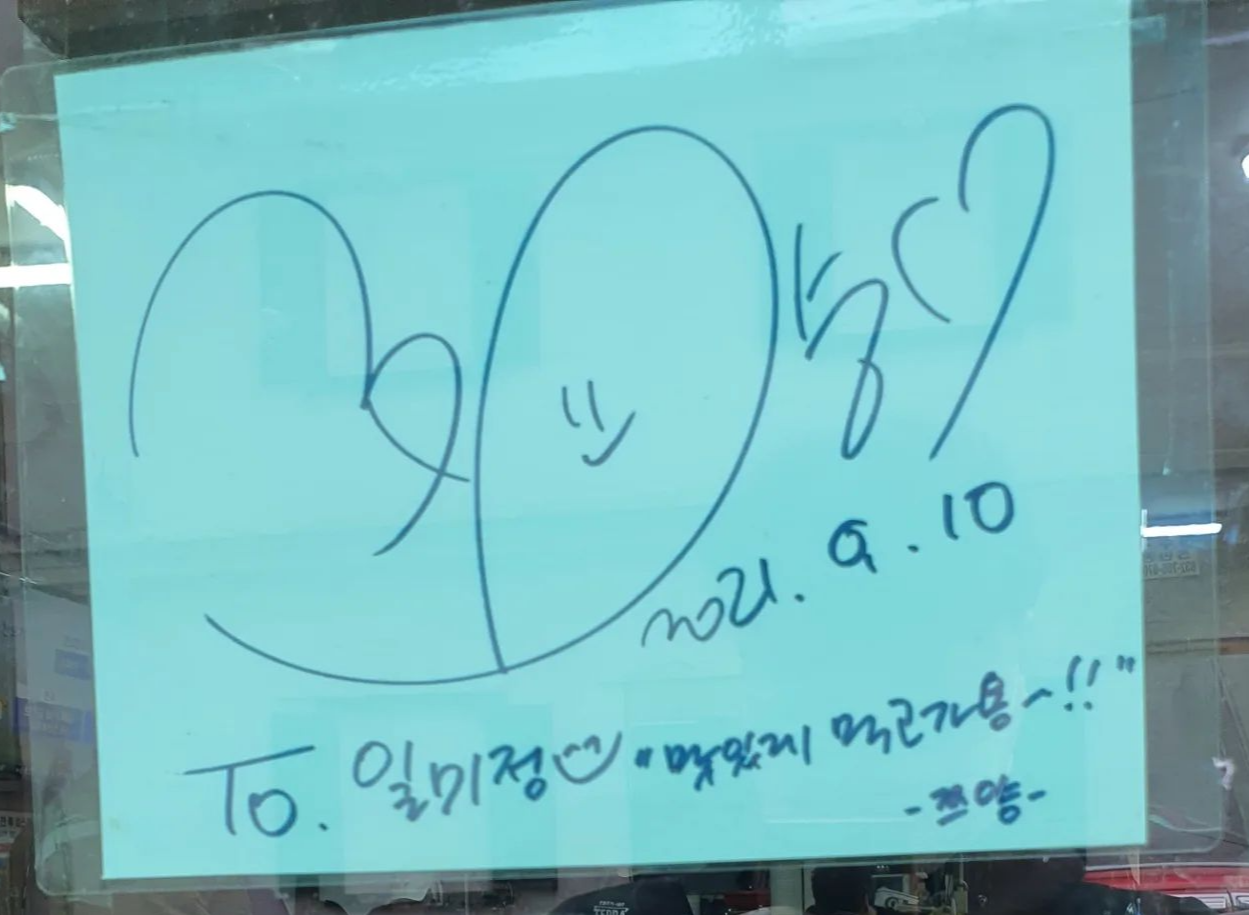 2021. 9. 10
To. 일미정 "맛있게 먹고가용~!!"
-쯔양-